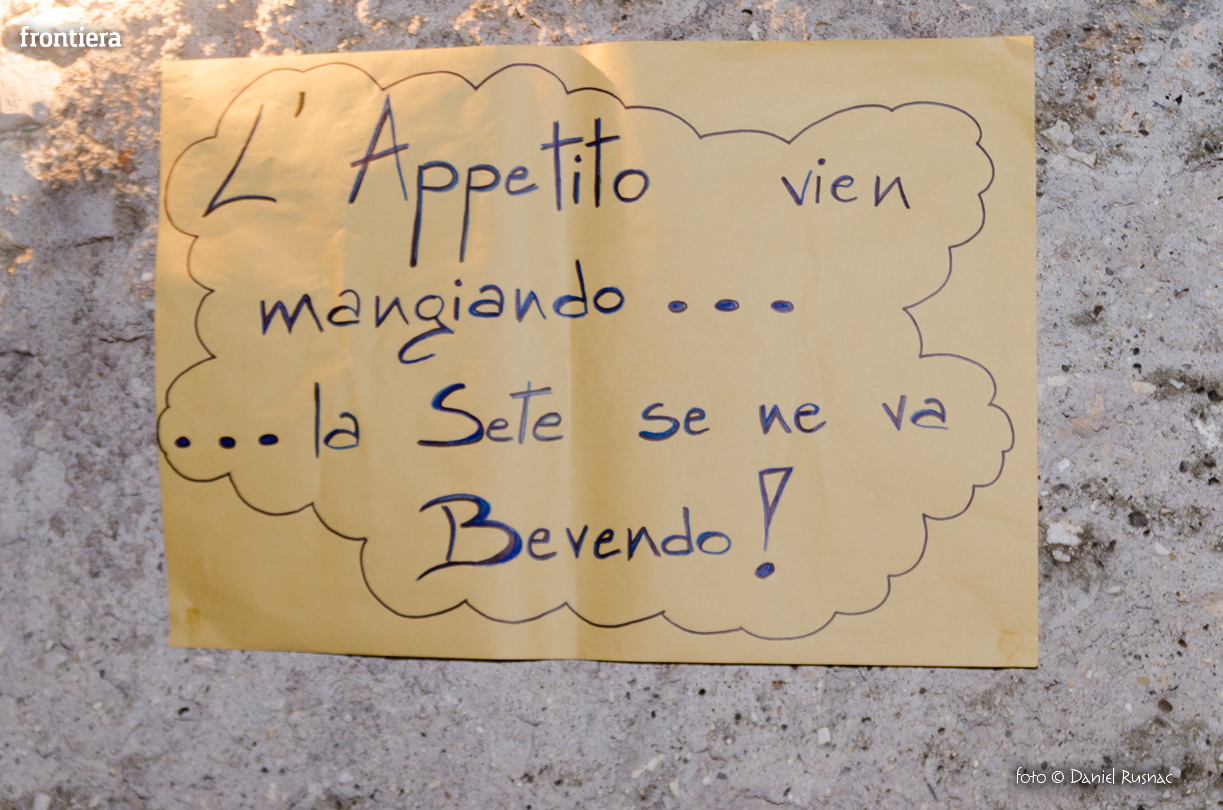 frontiera
L'Appetito vien
mangiando...
...la Sete se ne va
Bevendo!
foto © Daniel Rusnac